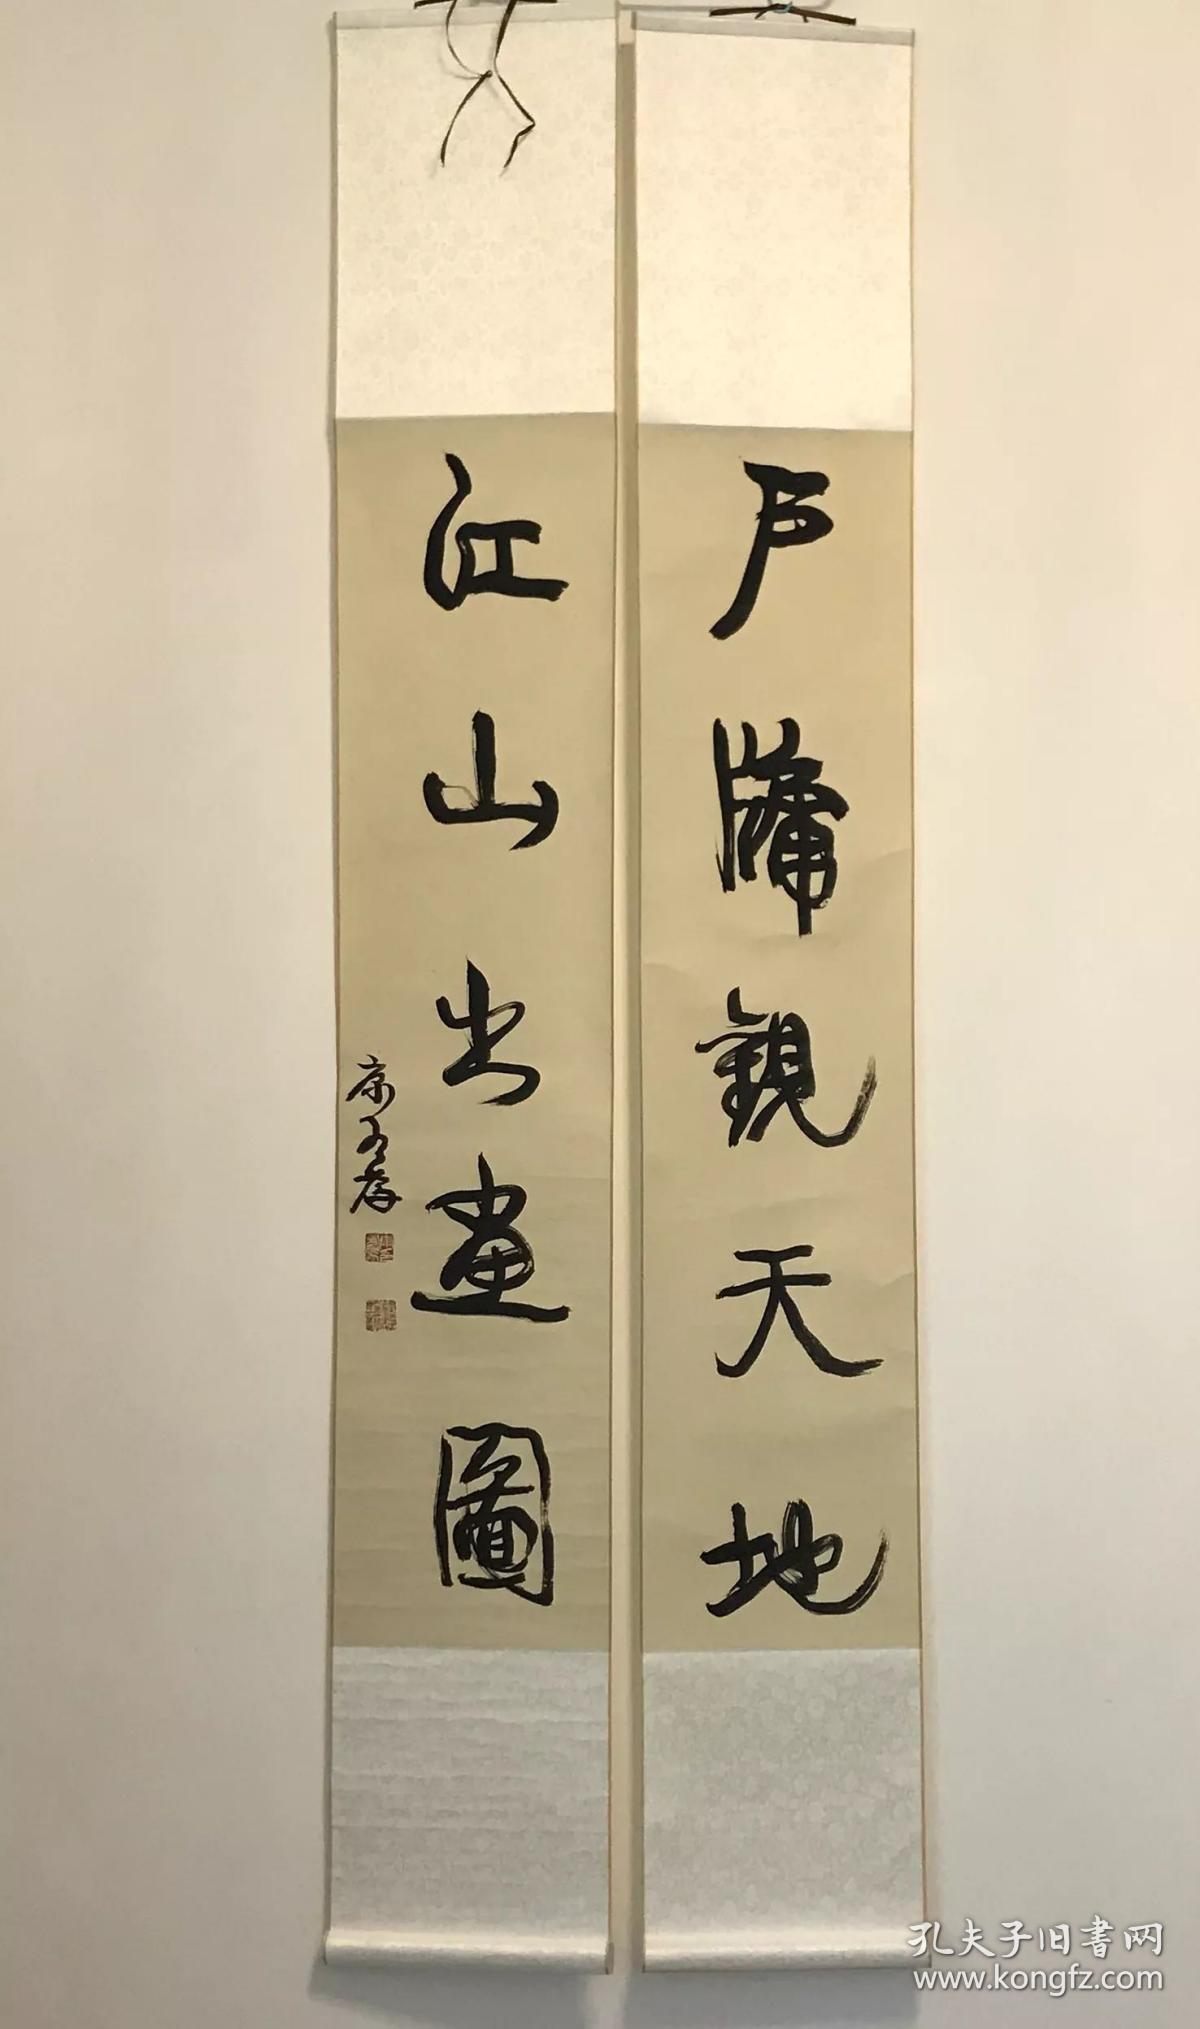 户牖觀天地
江山出畫圖
康有孝
孔夫子旧書网
www.kongfz.com